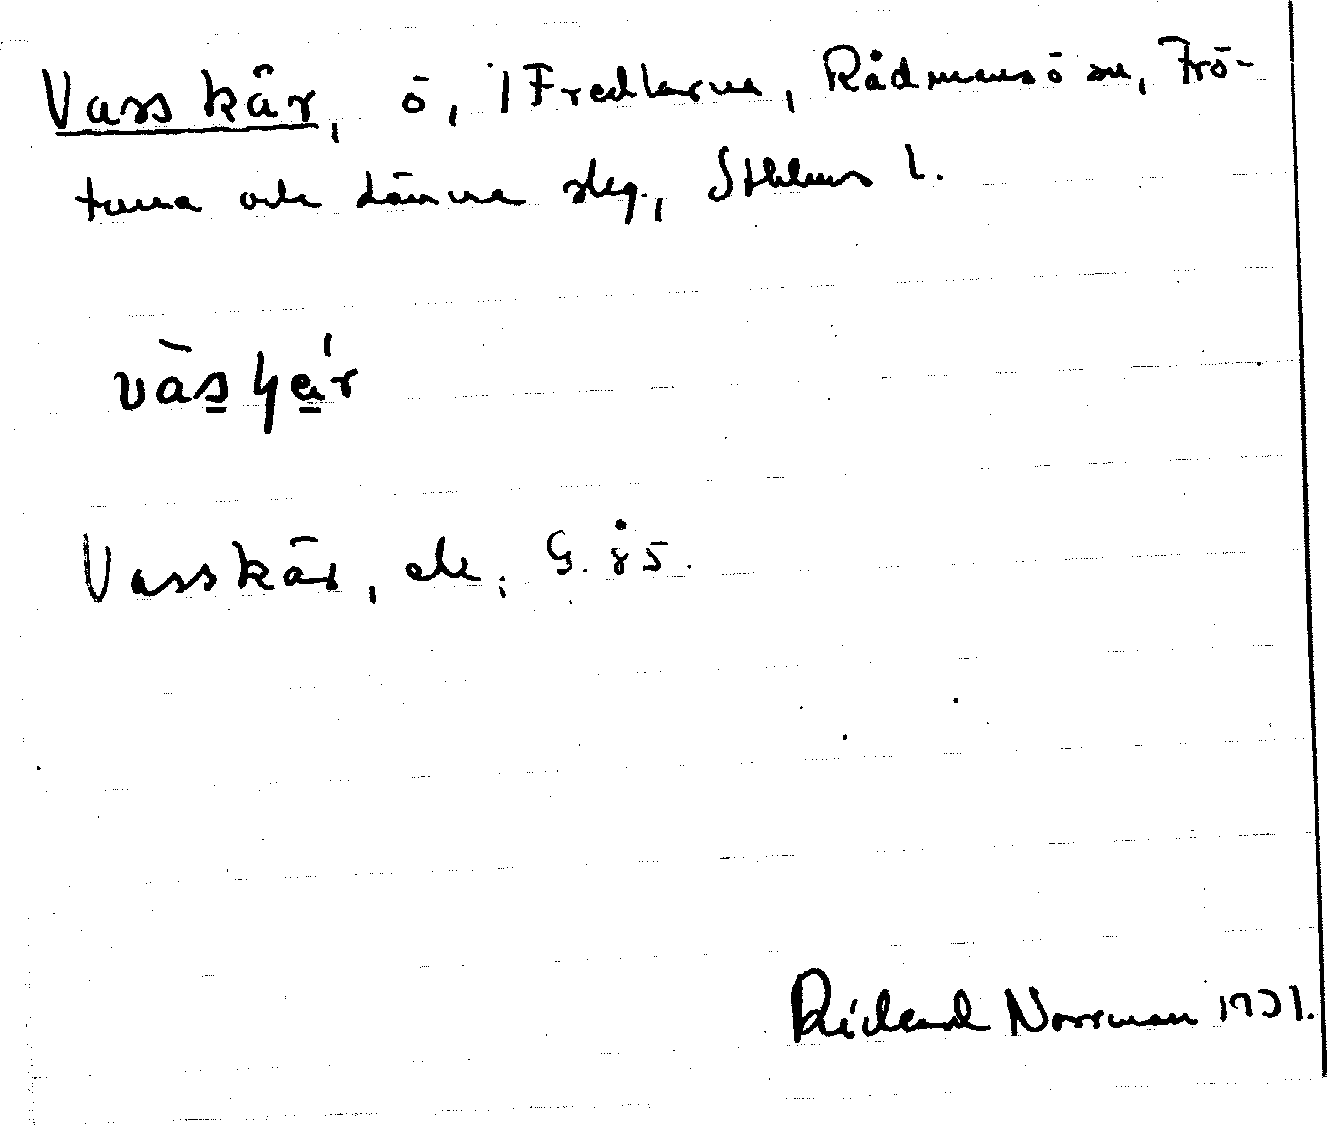 Vasskär, ö, i Fredlarna, Rådmansö sn, Frö-
tuna och Länna slg., Sthlms l.
vàsɥá̲r
Vasskär, ek. G. 85.
Rickard Norrman 1931.